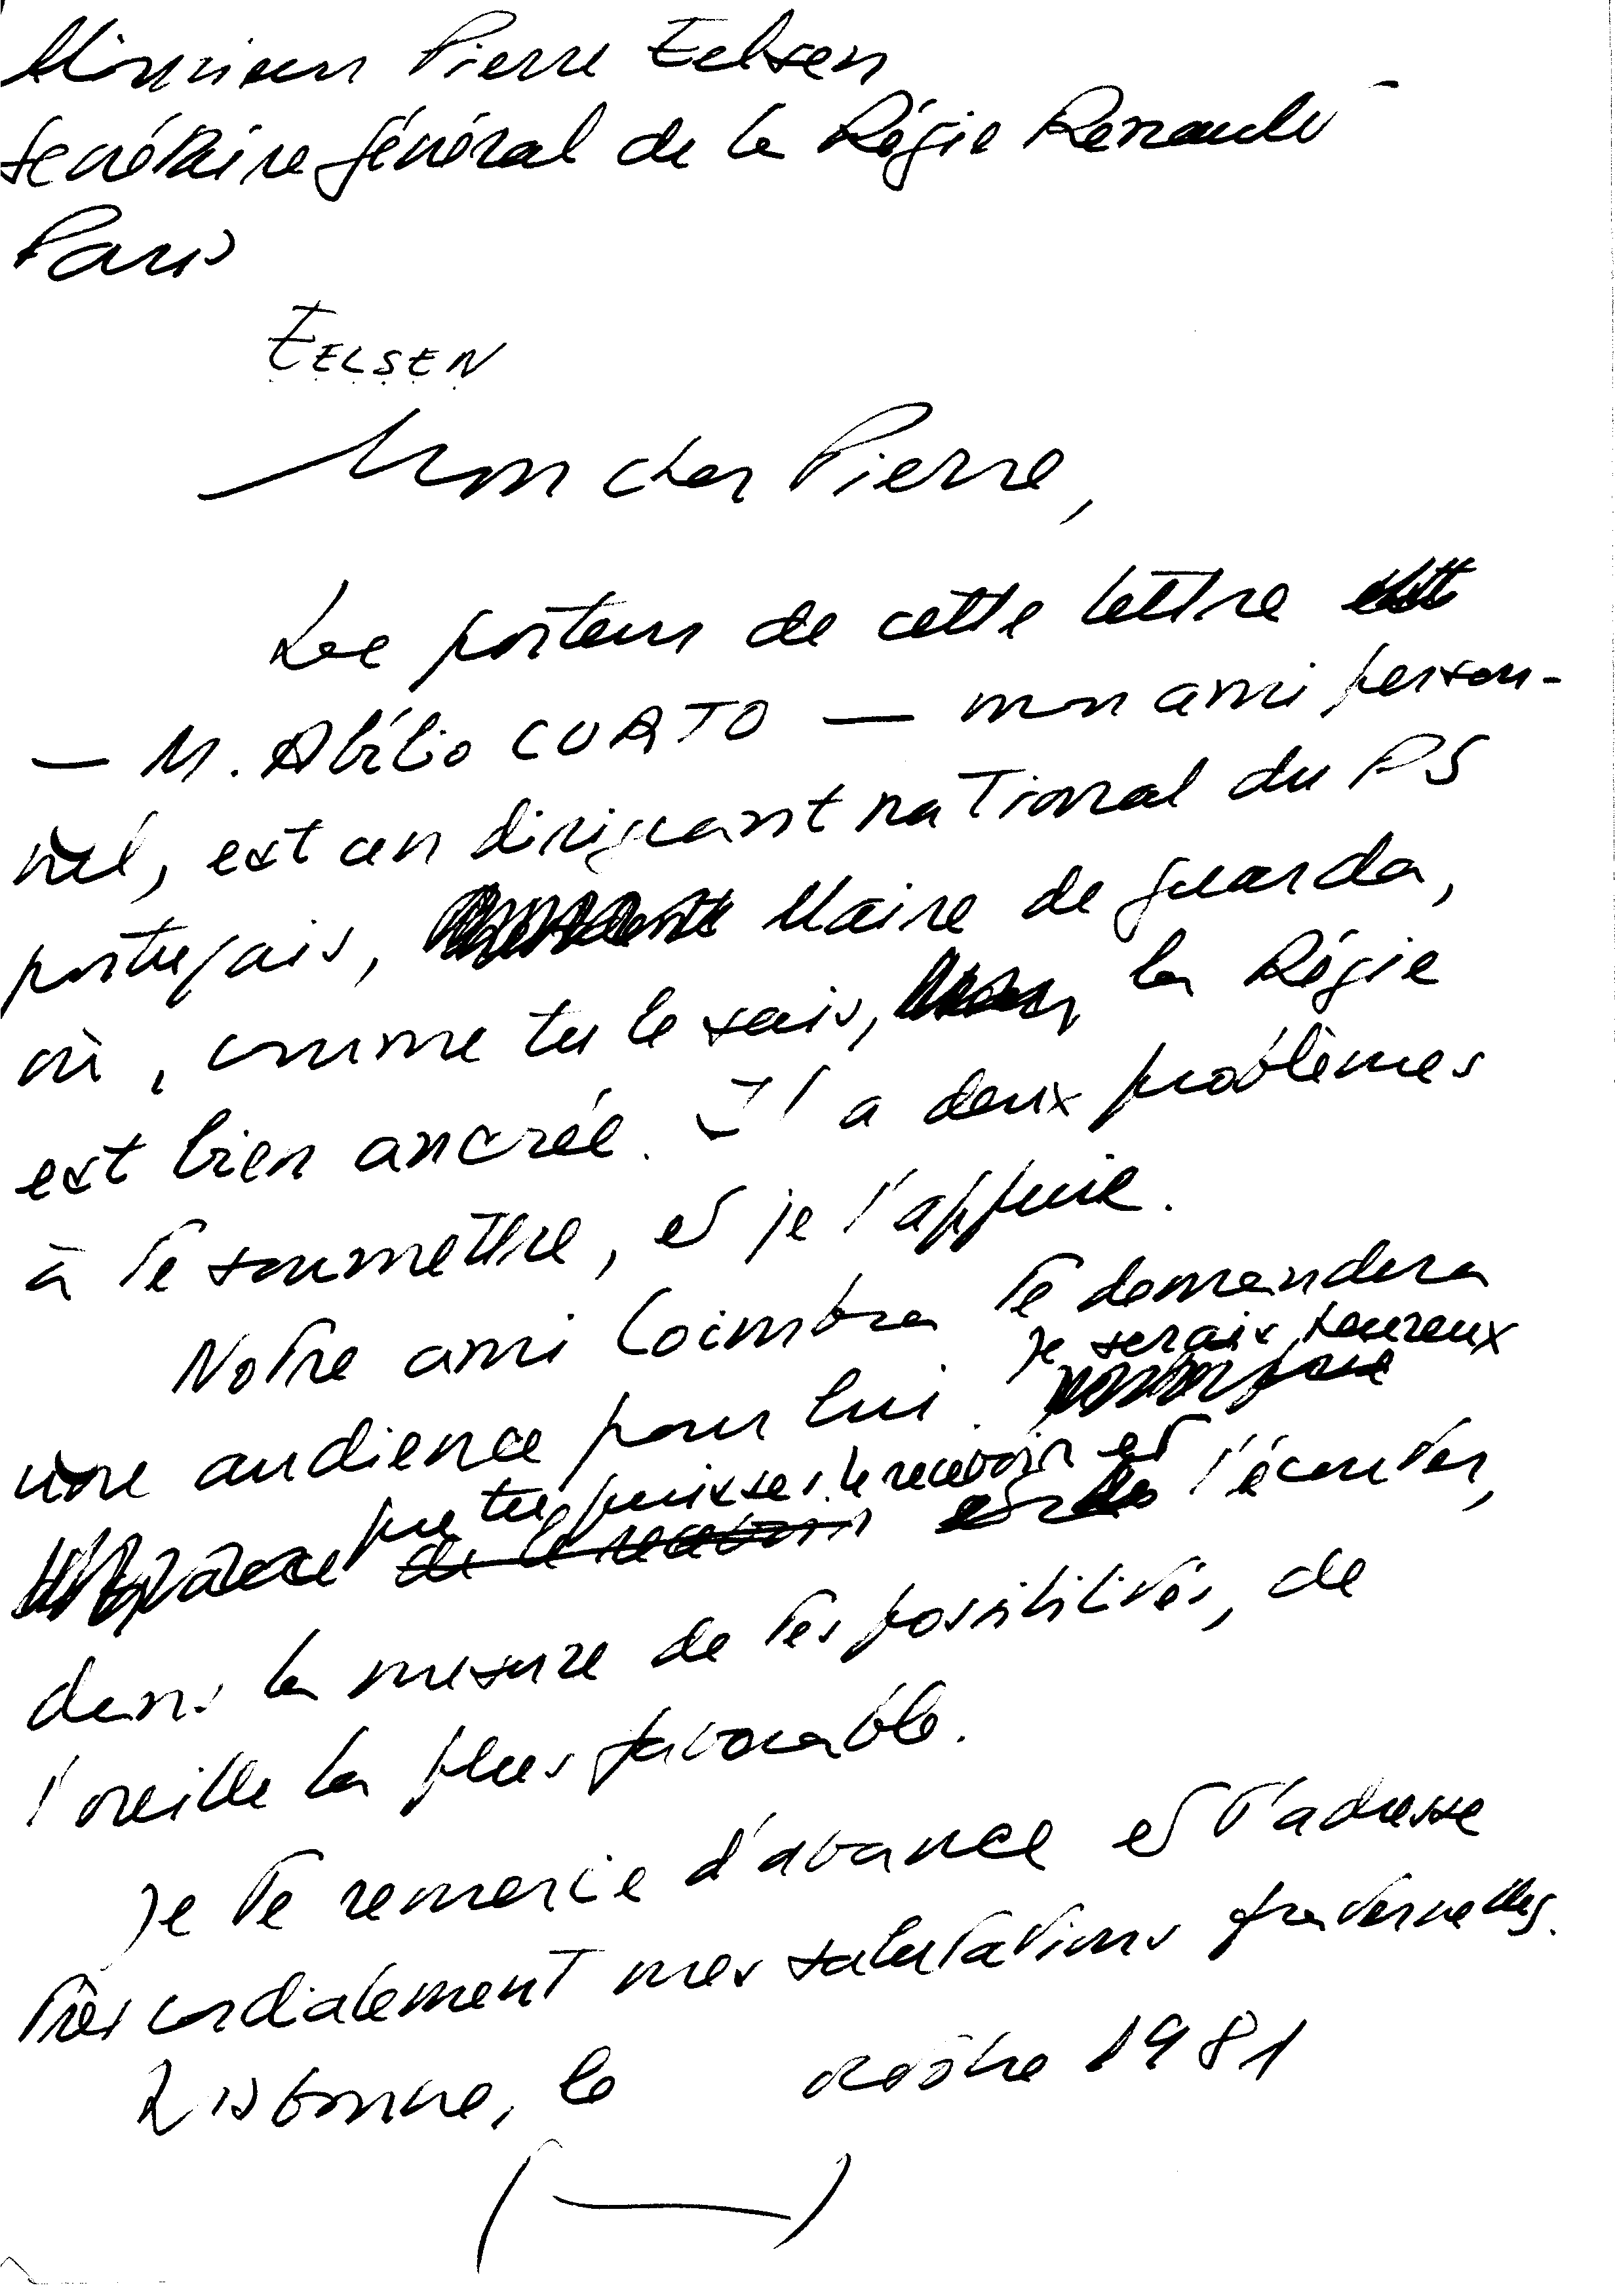 Monsieur Pierre Eelsen
Secrétaire général de la Régie Renault
Paris
EELSEN
Mon cher Pierre,
Le porteur de cette lettre
— M. Abílio CURTO — mon ami person-
nel, est un dirigeant national du PS
portugais, Maire de Guarda,
où, comme tu le sais, la Régie
est bien ancrée. Il a deux problèmes
à te soumettre, et je l'appuie.
Notre ami Coimbra te demandera
une audience pour lui. je serais heureux
que tu puisses le recevoir et l'écouter,
dans la mesure de tes possibilités, de
l'oreille la plus favorable.
Je te remercie d'avance et t'adresse
très cordialement mes salutations fraternelles.
Lisbonne, le octobre 1981
(—)